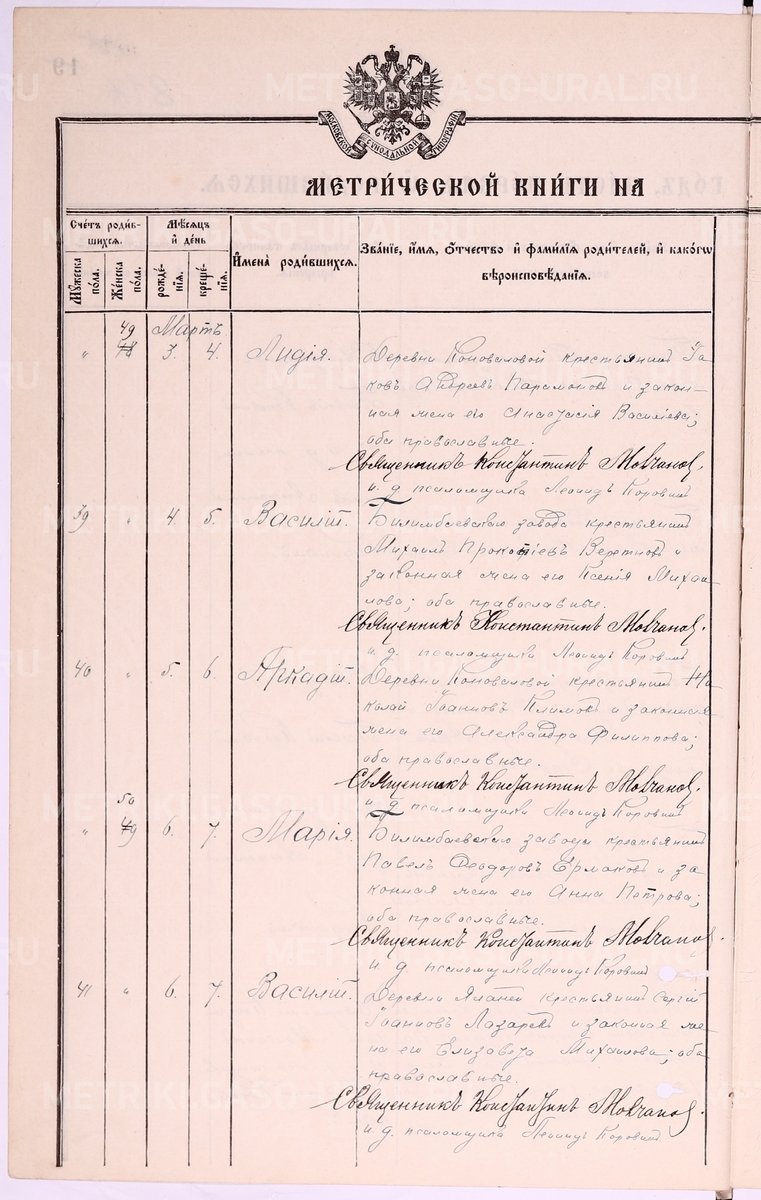 METRIKI.GASO-URAL.RU
МОСКОВСКОЙ СѴНОДАЛЬНОЙ ТИПОГРАФІИ
МЕТРИ́ЧЕСКОЙ КНИ́ГИ НА
Сче́тъ роди́вшихсѧ.
Мꙋ́жеска по́ла.
Же́нска по́ла.
Мѣ́сѧцъ и҆ де́нь
рожде́нїѧ.
креще́нїѧ.
И҆мена̀ роди́вшихсѧ.
Зва́нїе, и҆́мѧ, ѻ҆́тчество и҆ фами́лїѧ роди́телей, и҆ какѡ́гѡ
вѣроисповѣ́данїѧ.
Мартъ
49
" 48 3. 4. Лидія. Деревни Коноваловой крестьянинъ Іа-
ковъ Андреевъ Парамоновъ и закон-
ная жена его Анастасія Василіева;
оба православные.
Священникъ Константинъ Мовчанов.
и. д. псаломщика Леонидъ Коровинъ
39 " 4. 5. Василій. Билимбаевскаго завода крестьянинъ
Михаилъ Прокопіевъ и
законная жена его Ксенія Михаи-
лова; оба православные.
Священникъ Константинъ Мовчанов.
и. д. псаломщика Леонидъ Коровинъ
40 " 5. 6. Аркадій. Деревни Коноваловой крестьянинъ Ни-
колай Іоанновъ Климовъ и законная
жена его Александра Филиппова;
оба православные.
Священникъ Константинъ Мовчанов.
и. д. псаломщика Леонидъ Коровинъ
50
" 49 6. 7. Марія. Билимбаевскаго завода крестьянинъ
Павелъ Феодоровъ Ермаковъ и за-
конная жена его Анна Петрова;
оба православные.
Священникъ Константинъ Мовчанов.
и. д. псаломщика Леонидъ Коровинъ
41 " 6. 7. Василій. Деревни крестьянинъ Сергій
Іоанновъ Лазаревъ и законная же-
на его Елизавета Михаилова; оба
православные.
Священникъ Константинъ Мовчанов.
и. д. псаломщика Леонидъ Коровинъ